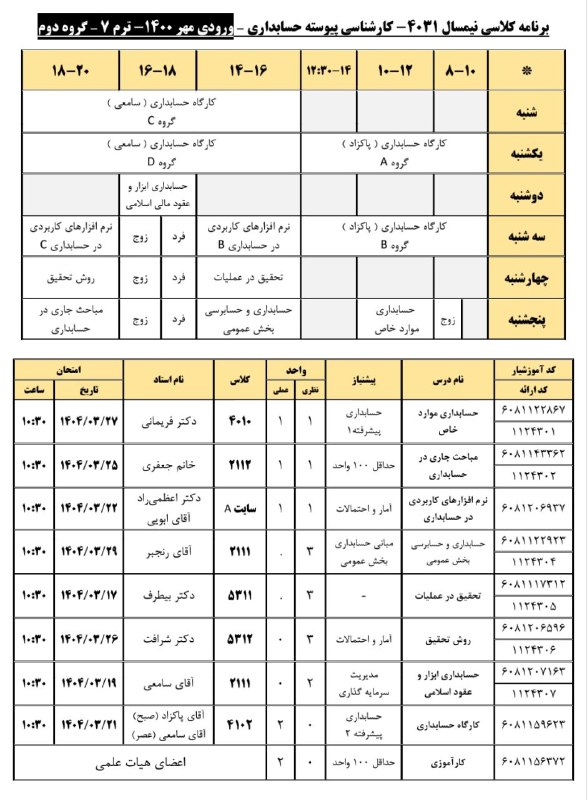 برنامه کلاسی نیمسال ۴۰۳۱- کارشناسی پیوسته حسابداری - ورودی مهر ۱۴۰۰- ترم ۷ - گروه دوم
* ۸-۱۰ ۱۰-۱۲ ۱۲:۳۰-۱۴ ۱۴-۱۶ ۱۶-۱۸ ۱۸-۲۰
شنبه
کارگاه حسابداری ( سامعی )
گروه C
یکشنبه
کارگاه حسابداری ( پاکزاد )
گروه A
کارگاه حسابداری ( سامعی )
گروه D
دوشنبه
حسابداری ابزار و
عقود مالی اسلامی
سه شنبه
کارگاه حسابداری ( پاکزاد )
گروه B
نرم افزارهای کاربردی
در حسابداری B
فرد
زوج
نرم افزارهای کاربردی
در حسابداری C
چهارشنبه
تحقیق در عملیات
فرد
زوج
روش تحقیق
پنجشنبه
زوج
حسابداری
موارد خاص
حسابداری و حسابرسی
بخش عمومی
فرد
زوج
مباحث جاری در
حسابداری
کد آموزشیار
کد ارائه
نام درس
پیشنیاز
واحد
نظری عملی
کلاس
نام استاد
امتحان
تاریخ ساعت
۶۰۸۱۱۲۲۸۶۷
۱۱۲۴۳۰۱
حسابداری موارد
خاص
حسابداری
پیشرفته۱
۱ ۱ ۴۰۱۰ دکتر فریمانی ۱۴۰۴/۰۳/۲۷ ۱۰:۳۰
۶۰۸۱۱۴۳۳۶۲
۱۱۲۴۳۰۲
مباحث جاری در
حسابداری
حداقل ۱۰۰ واحد
۱ ۱ ۲۱۱۲ خانم جعفری ۱۴۰۴/۰۳/۲۵ ۱۰:۳۰
۶۰۸۱۲۰۶۹۳۷
نرم افزارهای کاربردی
در حسابداری
آمار و احتمالات
۱ ۱ سایت A
دکتر اعظمی‌راد
آقای ابویی
۱۴۰۴/۰۳/۲۲ ۱۰:۳۰
۶۰۸۱۱۲۲۹۲۳
۱۱۲۴۳۰۴
حسابداری و حسابرسی
بخش عمومی
مبانی حسابداری
بخش عمومی
۳ . ۲۱۱۱ آقای رنجبر ۱۴۰۴/۰۳/۲۹ ۱۰:۳۰
۶۰۸۱۱۱۷۳۱۲
۱۱۲۴۳۰۵
تحقیق در عملیات
-
۳ . ۵۳۱۱ دکتر بیطرف ۱۴۰۴/۰۳/۱۷ ۱۰:۳۰
۶۰۸۱۲۰۶۵۹۶
۱۱۲۴۳۰۶
روش تحقیق
آمار و احتمالات
۳ ۰ ۵۳۱۲ دکتر شرافت ۱۴۰۴/۰۳/۲۶ ۱۰:۳۰
۶۰۸۱۲۰۷۱۶۳
۱۱۲۴۳۰۷
حسابداری ابزار و
عقود اسلامی
مدیریت
سرمایه گذاری
۲ ۰ ۲۱۱۱ آقای سامعی ۱۴۰۴/۰۳/۱۹ ۱۰:۳۰
۶۰۸۱۱۵۹۶۲۳
کارگاه حسابداری
حسابداری
پیشرفته ۲
۰ ۲ ۴۱۰۲
آقای پاکزاد (صبح)
آقای سامعی (عصر)
۱۴۰۴/۰۳/۲۱ ۱۰:۳۰
۶۰۸۱۱۵۶۳۷۲
کارآموزی
حداقل ۱۰۰ واحد
۰ ۲ اعضای هیات علمی